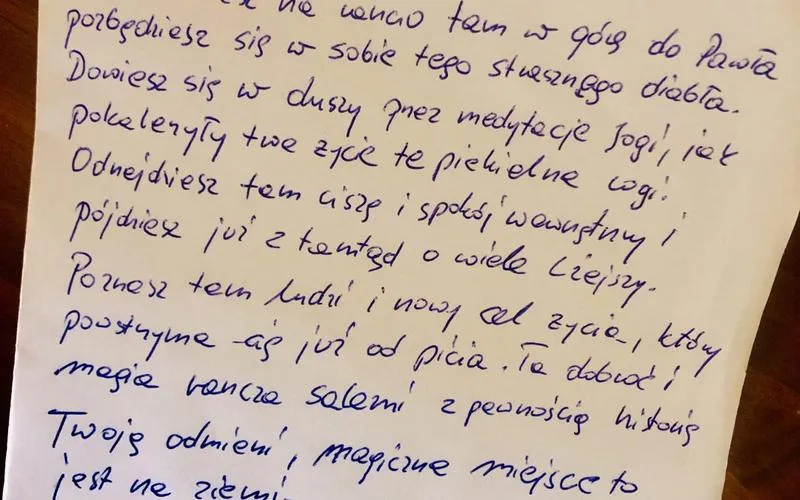 na rancio tam w górę do Pawła
pozbędziesz się w sobie tego strasznego diabła.
Dowiesz się w duszy przez medytacje Jogi, jak
pokaleczyły twe życie te piekielne rogi.
Odnejdziesz tam ciszę i spokój wewnętrzny i
pójdziesz już z tamtąd o wiele lżejszy.
Poznasz tam ludzi i nowy cel życia, który
powstrzyma cię już od picia. Ta dobroć i
magia rancza salami z pewnością historię
Twoją odmieni, magiczne miejsce to
jest na ziemi.